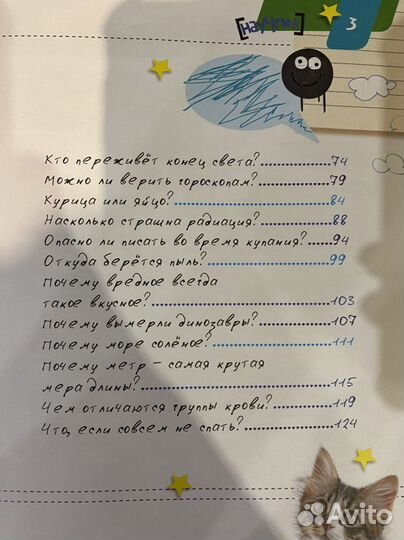 [НАУЧПОК]
3
Кто переживёт конец света?..................74
Можно ли верить гороскопам?..............79
Курица или яйцо?......................................84
Насколько страшна радиация?................88
Опасно ли писать во время купания?.....94
Откуда берётся пыль?..............................99
Почему вредное всегда
такое вкусное?..........................................103
Почему вымерли динозавры?..................107
Почему море солёное?..............................111
Почему метр – самая крутая
мера длины?..............................................115
Чем отличаются группы крови?.............119
Что, если совсем не спать?.....................124
Avito